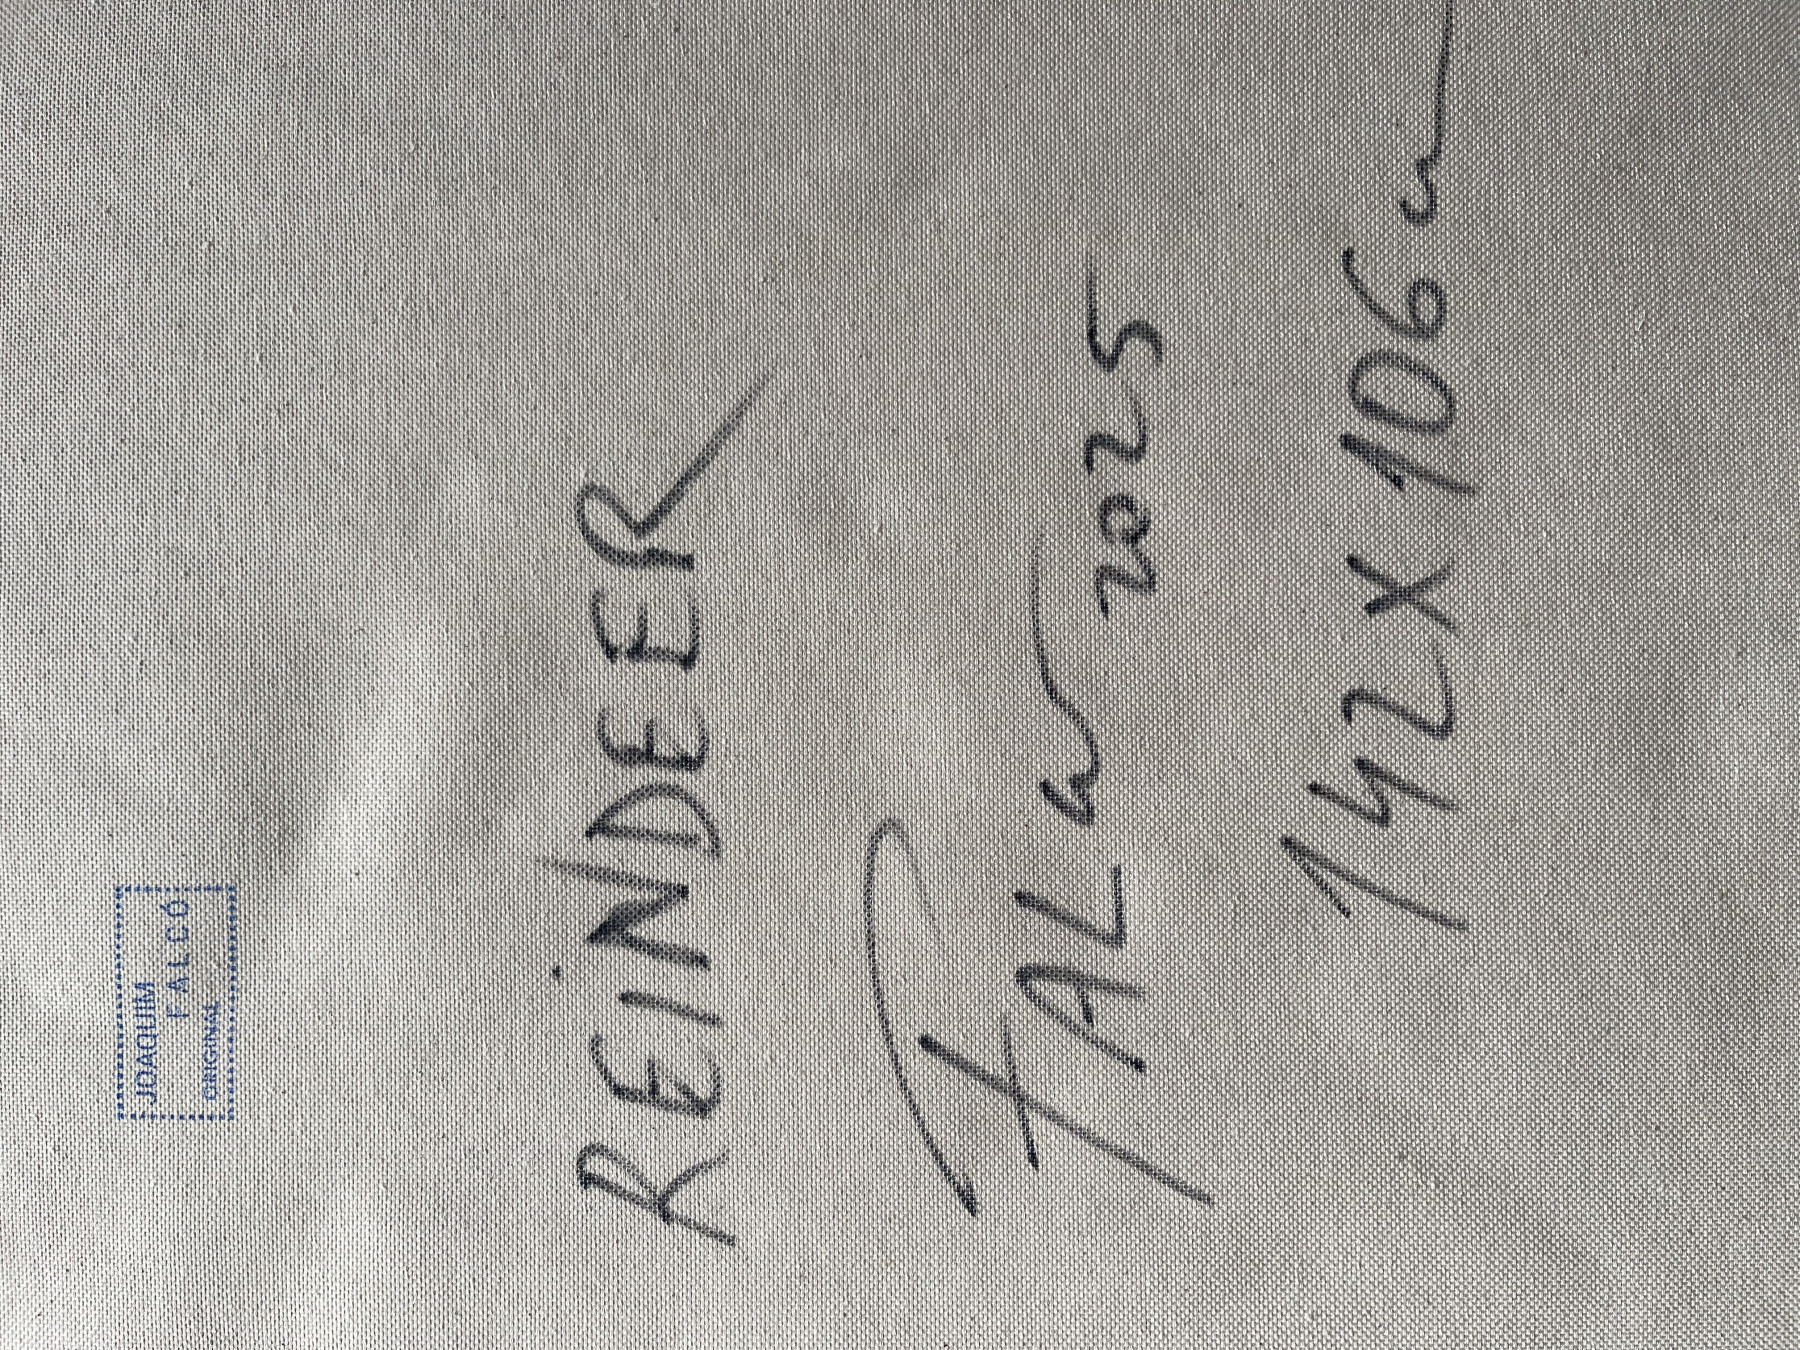 JOAQUIM
FALCÓ
ORIGINAL
REINDEER
FALCÓ 2025
142X106 cm